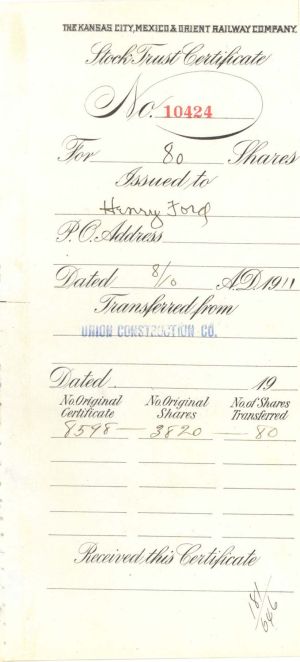 THE KANSAS CITY, MEXICO & ORIENT RAILWAY COMPANY.
Stock Trust Certificate
No. 10424
For 80 Shares
Issued to
Henry Ford
P.O. Address
Dated 8/10 A.D. 1911
Transferred from
UNION CONSTRUCTION CO.
Dated 19
No. Original Certificate No. Original Shares No. of Shares Transferred
8598 — 3820 — 80
Received this Certificate
181/646